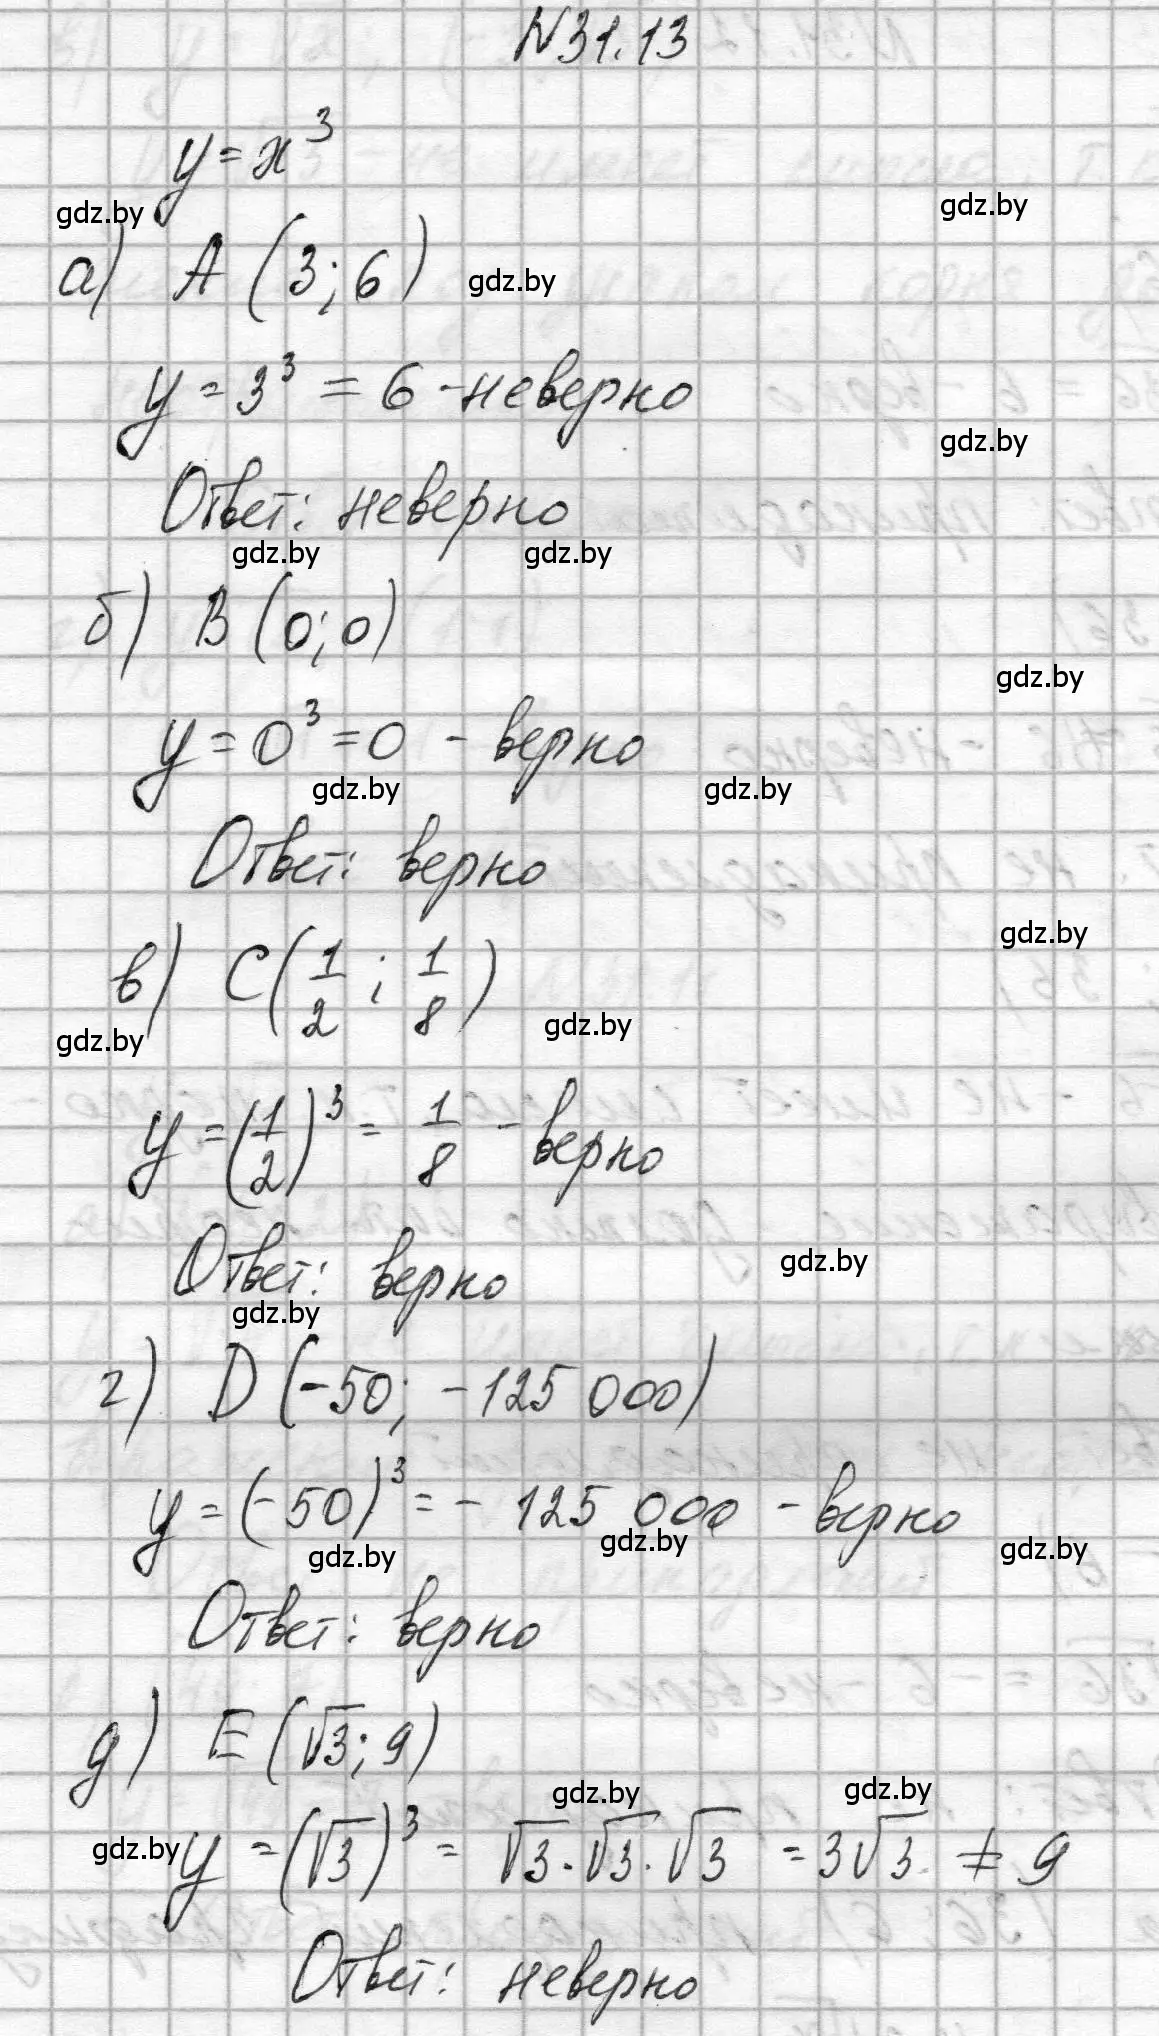 N31.13
y = x³
gdz.by gdz.by
а) A (3; 6) gdz.by
y = 3³ = 6 - неверно
gdz.by
Ответ: неверно
gdz.by gdz.by
б) B (0; 0)
gdz.by
y = 0³ = 0 - верно
gdz.by gdz.by
Ответ: верно
gdz.by
в) C (1/2 ; 1/8)
gdz.by gdz.by
y = (1/2)³ = 1/8 - верно
Ответ: верно gdz.by
gdz.by
г) D (-50; -125 000)
y = (-50)³ = - 125 000 - верно
gdz.by gdz.by gdz.by
Ответ: верно
д) E (√3; 9)
gdz.by gdz.by
gdz.by y = (√3)³ = √3 · √3 · √3 = 3√3 ≠ 9
Ответ: неверно